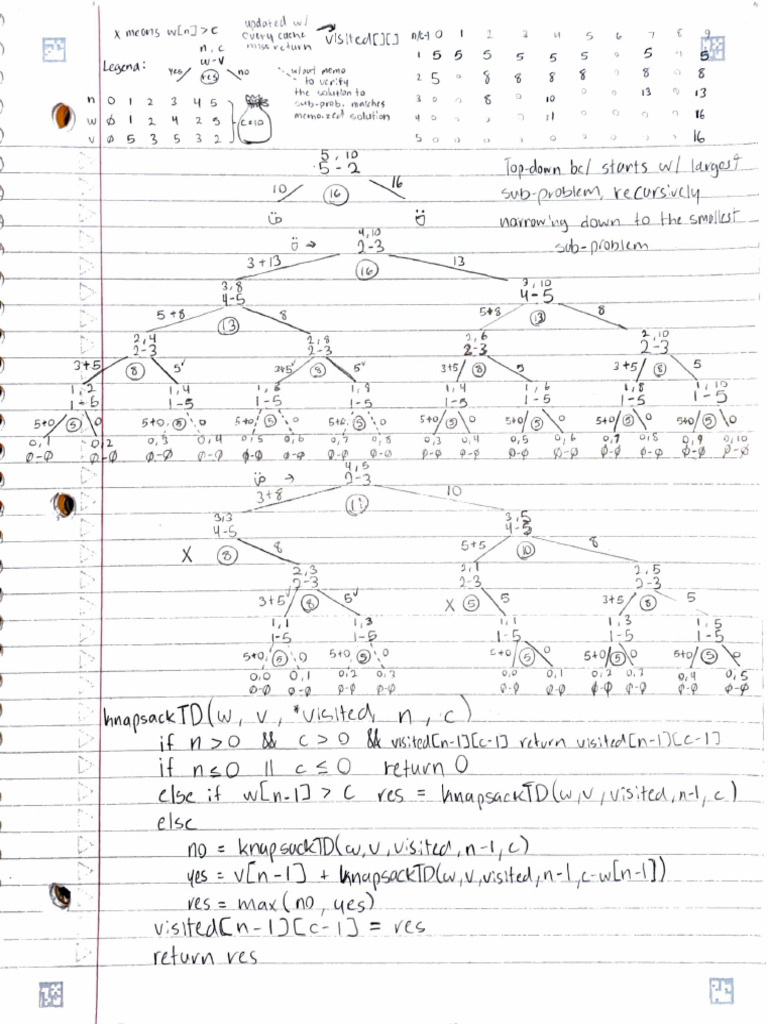 X means w[n] > c
updated w/
every cache
miss return
visited[][]
n/c-1 0 1 2 3 4 5 6 7 8 9
1 5 5 5 5 5 5 0 5 0 5
2 5 0 8 8 8 8 0 8 0 8
3 0 0 8 0 10 0 0 13 0 13
4 0 0 0 0 11 0 0 0 0 16
5 0 0 0 0 0 0 0 0 0 16
Legend:
n, c
w-v
yes res no
w/out memo
to verify
the solution to
sub-prob. matches
memoized solution
n 0 1 2 3 4 5
w ∅ 1 2 4 2 5
v ∅ 5 3 5 3 2
C=10
Top-down bc/ starts w/ largest
sub-problem, recursively
narrowing down to the smallest
sub-problem
5, 10
5-2
10 16 16
4, 10
2-3
3+13 16 13
3, 8 3, 10
4-5 4-5
5+8 13 8 5+8 13 8
2, 4 2, 8 2, 6 2, 10
2-3 2-3 2-3 2-3
3+5 8 5✓ 3+5✓ 8 5✓ 3+5 8 5 3+5 8 5
1, 2 1, 4 1, 6 1, 8 1, 4 1, 6 1, 8 1, 10
1-5 1-5 1-5 1-5 1-5 1-5 1-5 1-5
5+0 5 0 5+0 5 0 5+0 5 0 5+0 5 0 5+0 5 0 5+0 5 0 5+0 5 0 5+0 5 0
0, 1 0, 2 0, 3 0, 4 0, 5 0, 6 0, 7 0, 8 0, 3 0, 4 0, 5 0, 6 0, 7 0, 8 0, 9 0, 10
∅-∅ ∅-∅ ∅-∅ ∅-∅ ∅-∅ ∅-∅ ∅-∅ ∅-∅ ∅-∅ ∅-∅ ∅-∅ ∅-∅ ∅-∅ ∅-∅ ∅-∅ ∅-∅
4, 5
2-3
3+8 11 10
3, 3 3, 5
4-5 4-5
X 8 8 5+5 10 8
2, 3 2, 1 2, 5
2-3 2-3 2-3
3+5✓ 8 5✓ X 5 5 3+5 8 5
1, 1 1, 3 1, 1 1, 3 1, 5
1-5 1-5 1-5 1-5 1-5
5+0 5 0 5+0 5 0 5+0 5 0 5+0 5 0 5+0 5 0
0, 0 0, 1 0, 2 0, 3 0, 0 0, 1 0, 2 0, 3 0, 4 0, 5
∅-∅ ∅-∅ ∅-∅ ∅-∅ ∅-∅ ∅-∅ ∅-∅ ∅-∅ ∅-∅ ∅-∅
knapsackTD(w, v, *visited, n, c)
if n > 0 && c > 0 && visited[n-1][c-1] return visited[n-1][c-1]
if n ≤ 0 || c ≤ 0 return 0
else if w[n-1] > c res = knapsackTD(w, v, visited, n-1, c)
else
no = knapsackTD(w, v, visited, n-1, c)
yes = v[n-1] + knapsackTD(w, v, visited, n-1, c-w[n-1])
res = max(no, yes)
visited[n-1][c-1] = res
return res